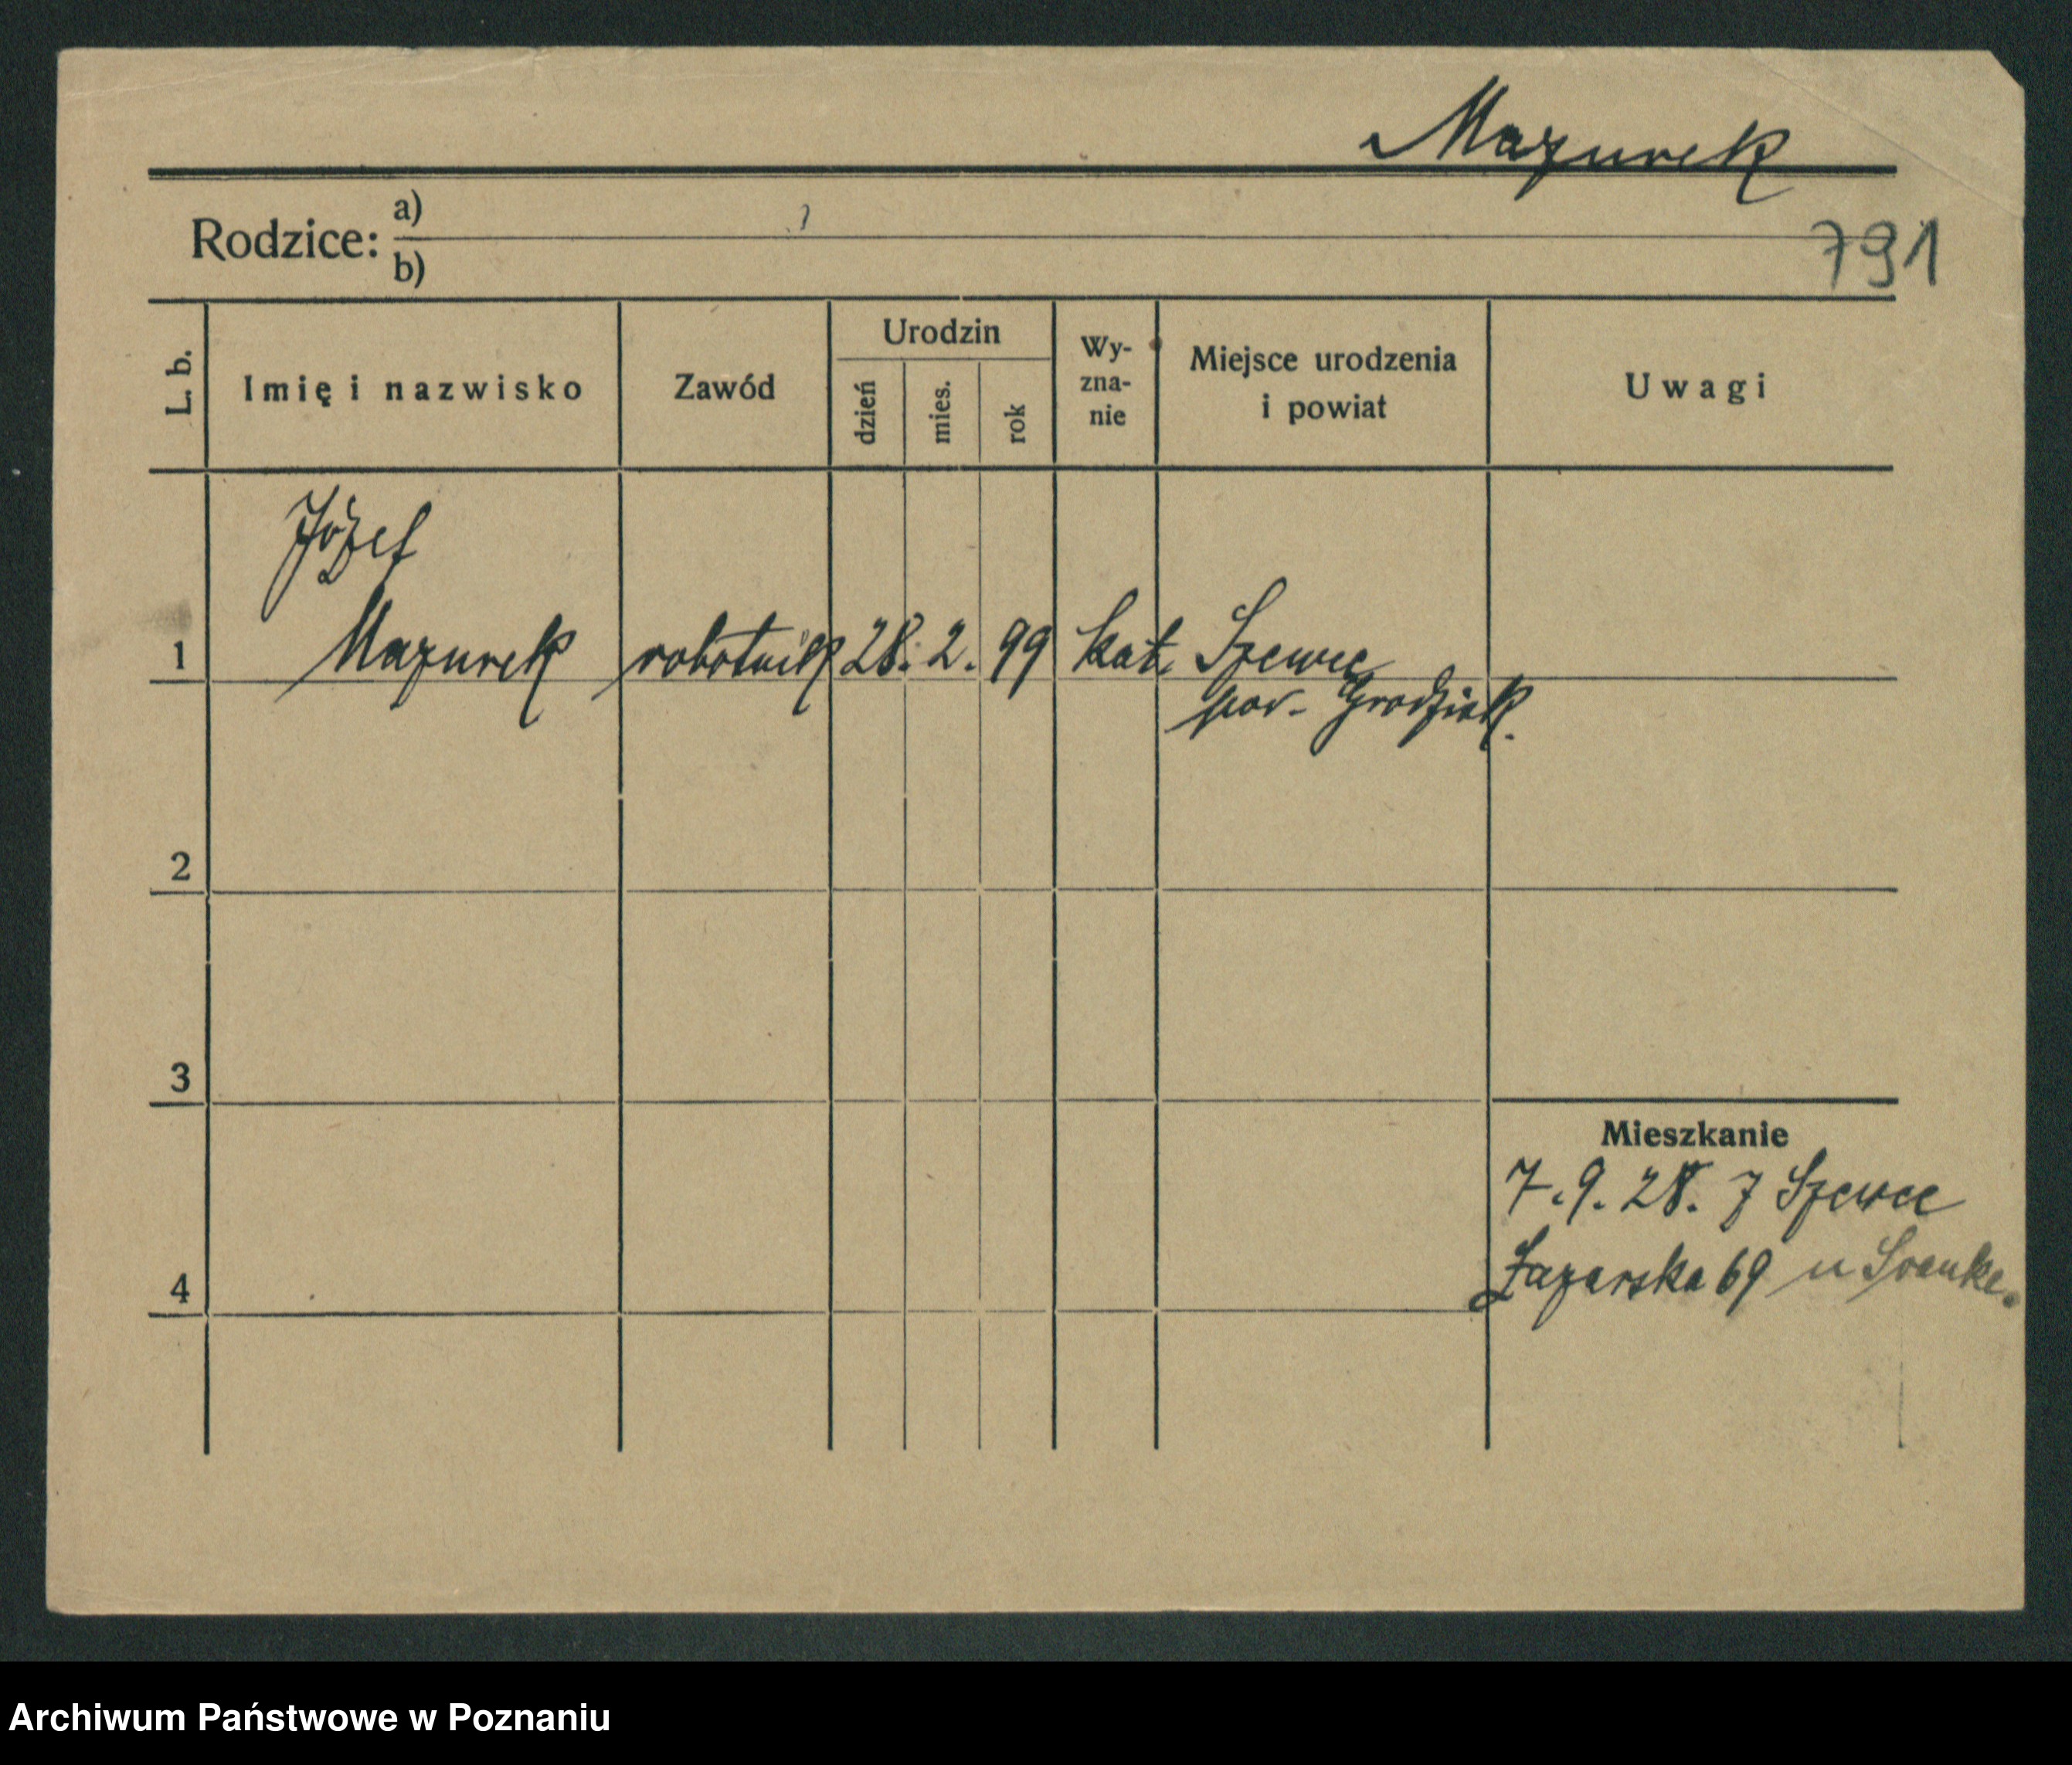 Mazurek
Rodzice: a)
b)
791
L. b.
Imię i nazwisko
Zawód
Urodzin
dzień
mies.
rok
Wy-
zna-
nie
Miejsce urodzenia
i powiat
Uwagi
Józef
1 Mazurek robotnik 28. 2. 99 kat. Szewce
pow. Grodzisk.
2
3
Mieszkanie
7.9.28. z Szewce
4 Łazarska 69 u
Archiwum Państwowe w Poznaniu